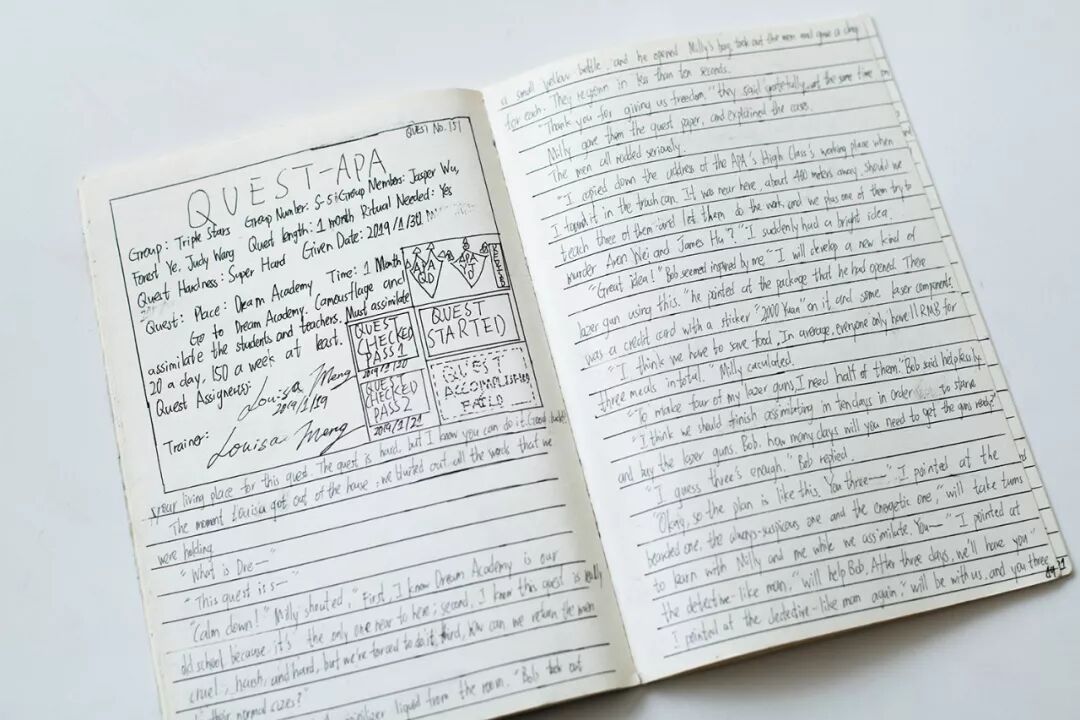 QUEST NO. 151
QUEST-APA
Group: Triple Stars Group Number: S-5 Group Members: Jasper Wu,
Forest Ye, Judy Wang Quest length: 1 month Ritual Needed: Yes
Quest Hardness: Super Hard Given Date: 2019/1/30
Quest: Place: Dream Academy Time: 1 Month
Go to Dream Academy. Camouflage and
assimilate the students and teachers. Must assimilate
20 a day, 150 a week at least.
Quest Assigness:
Louisa Meng
2019/1/19
Trainer:
Louisa Meng
APA
QUEST
CHECKED
PASS 1
2019/1/20
QUEST
STARTED
QUEST
CHECKED
PASS 2
2019/1/21
QUEST
ACCOMPLISHED
FAILD
your living place for this quest. The quest is hard, but I know you can do it. Good luck!
The moment Louisa got out of the house, we blurted out all the words that we
were holding.
"What is Dre—"
"This quest is—"
"Calm down!" Milly shouted, "First, I know Dream Academy is our
old school because it's the only one near to here; second, I know this quest is really
cruel, harsh, and hard, but we're forced to do it, third, how can we return the men
their normal sizes?"
liquid from the room. "Bob took out
a small yellow bottle, and he opened Milly's bag, took out the men and gave a drop
for each. They regrown in less than ten seconds.
"Thank you for giving us freedom," they said gratefully at the same time
Milly gave them the quest paper, and explained the case.
The men all nodded seriously.
"I copied down the address of the APA's High Class's working place when
I found it in the trash can. It was near here, about 480 meters away, should we
teach three of them and let them do the work and we plus one of them try to
murder Aven Wei and James Hu?" I suddenly had a bright idea.
"Great idea!" Bob seemed inspired by me. "I will develop a new kind of
lazer gun using this." he pointed at the package that he had opened. There
was a credit card with a sticker "2000 Yuan" on it and some laser components.
"I think we have to save food. In average, everyone only have 11 RMB for
three meals in total." Milly caculated.
"To make four of my lazer guns, I need half of them." Bob said helplessly.
"I think we should finish assimilating in ten days in order to starve
and buy the lazer guns. Bob, how many days will you need to get the guns ready?"
"I guess three's enough." Bob replied.
"Okay, so the plan is like this. You three—" I pointed at the
bearded one, the always-suspicious one and the energetic one "will take turns
to learn with Milly and me while we assimilate. You—" I pointed at
the detective-like man, "will help Bob. After three days, we'll have you"
I pointed at the dectective-like man again, "will be with us, and you three